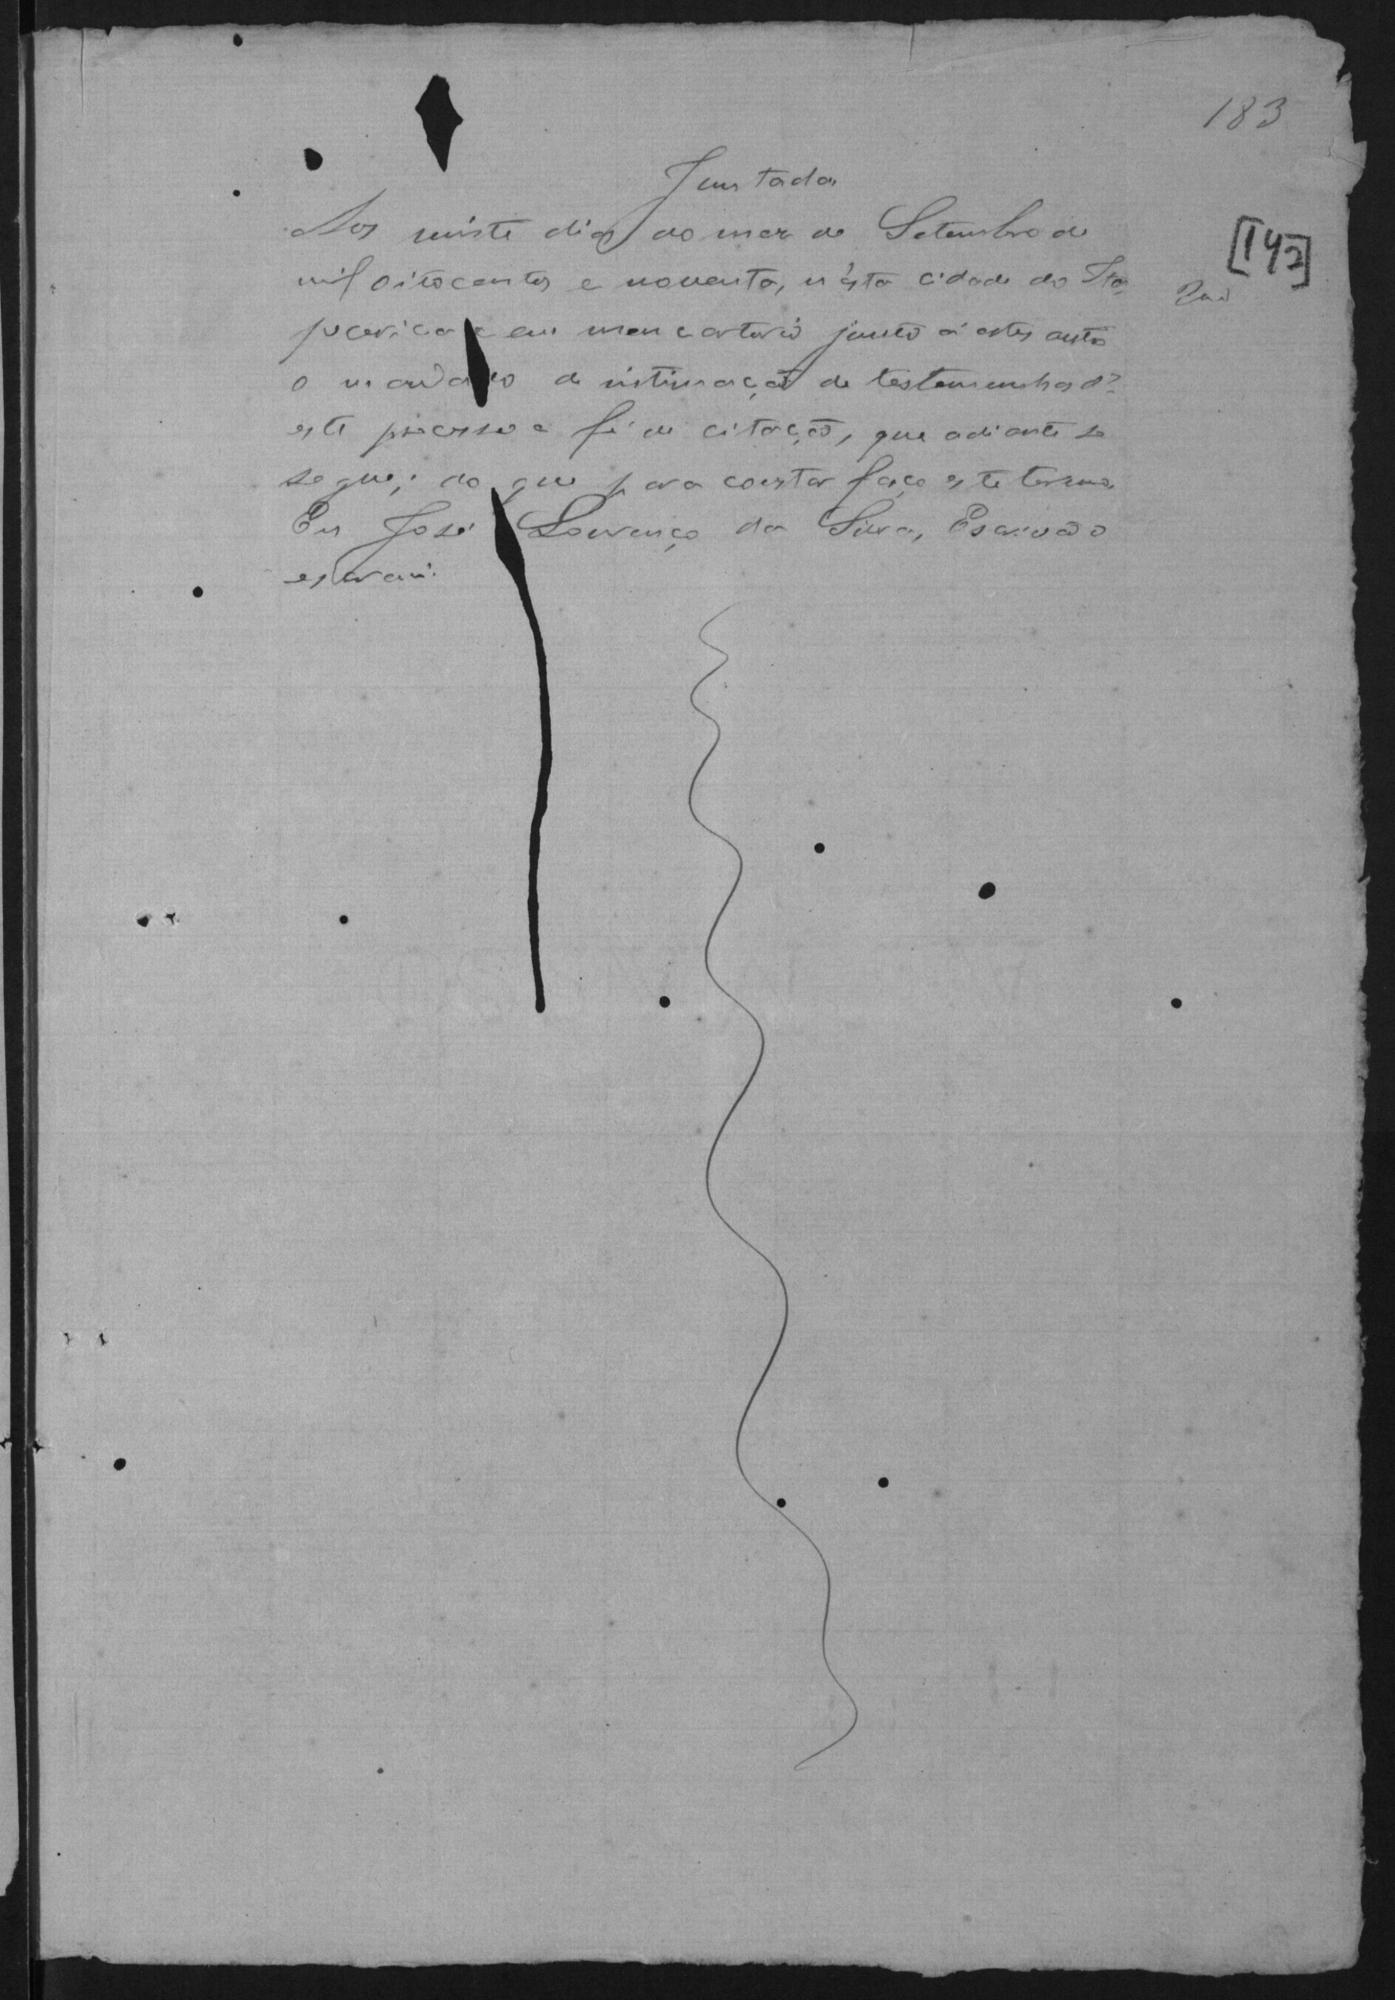 183
Juntada
Aos vinte dias do mez de Setembro de
[142]
mil oitocentos e noventa, n'esta cidade do Ita-
pecerica e em meu cartorio junto á estes autos
o mandado de intimação de testemunhas d'
este processo e fé de citação, que adiante se
segue; do que para constar faço este termo.
Eu José Lourenço da Silva, Escrivão o
escrevi.